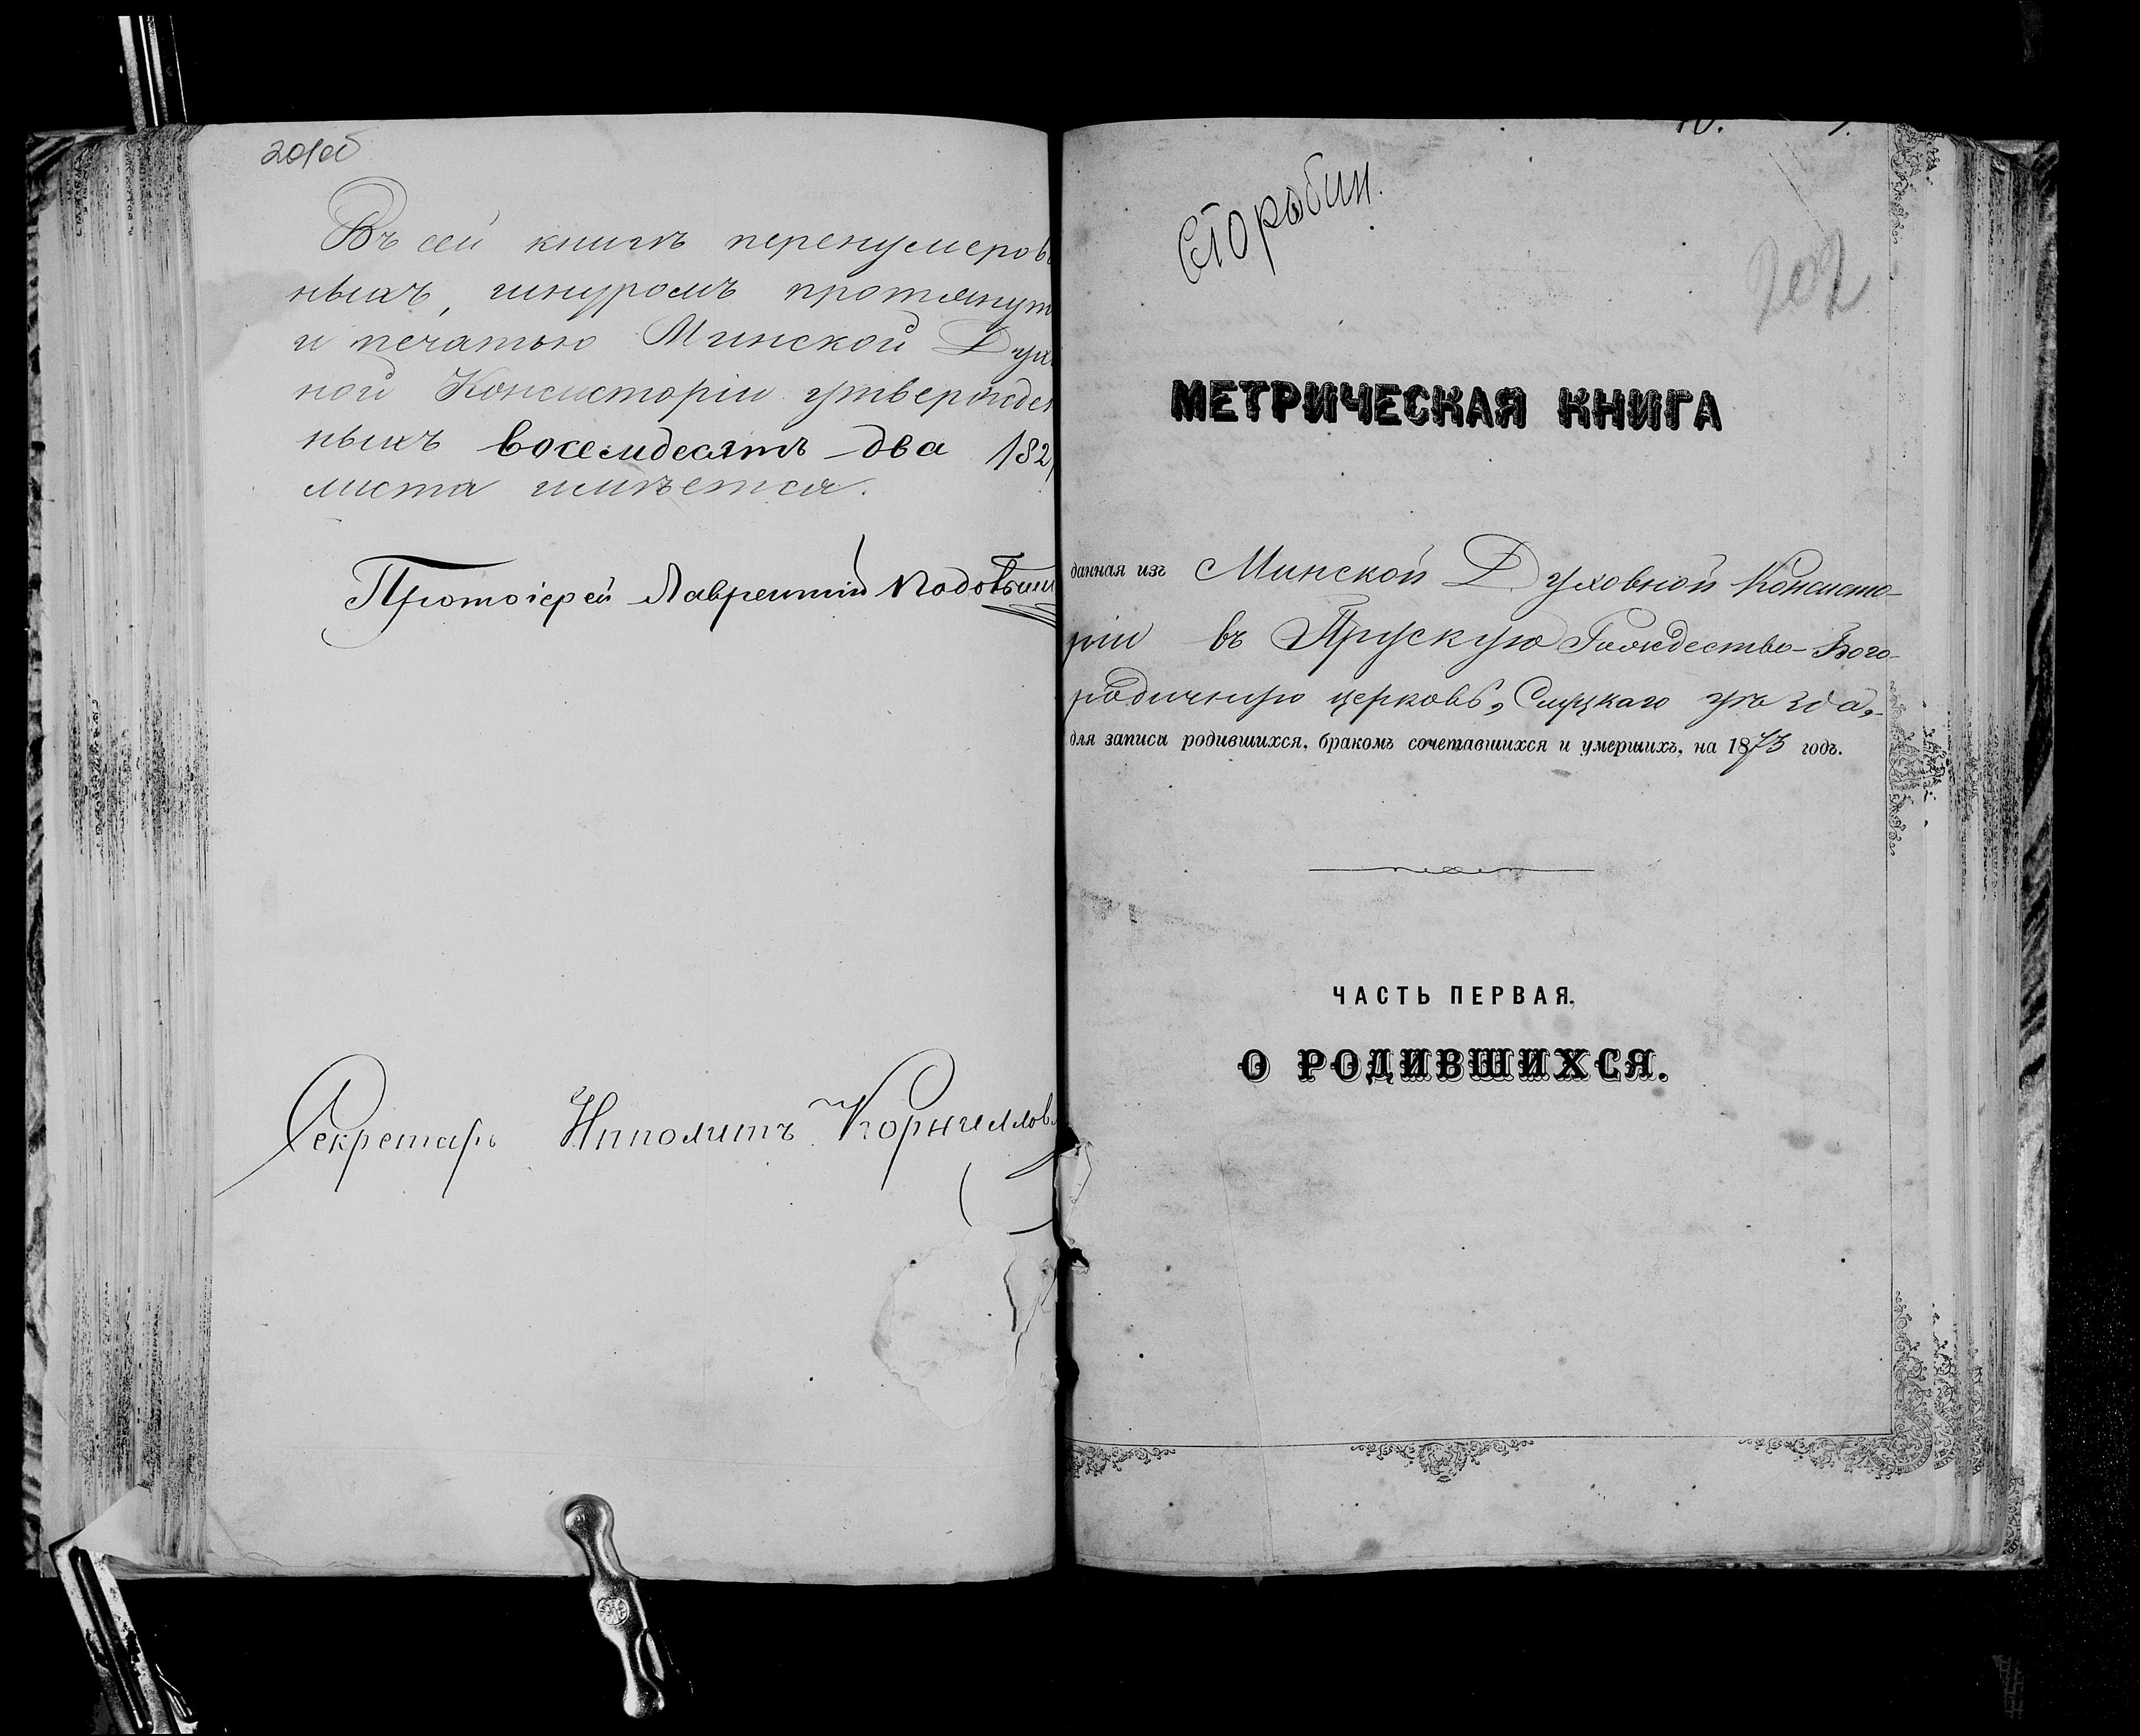 201об
Въ сей книгѣ перенумеров
ныхъ, шнуромъ протянут
и печатью Минской Дух
ной Консисторіи утвержден
ныхъ восемдесятъ два /82/
листа имѣется.
Протоіерей Лаврентій
Секретарь Ипполитъ Корнилов
Старобин.
202
МЕТРИЧЕСКАЯ КНИГА
данная изъ Минской Духовной Консисто-
ріи въ Прускую Рождество-Бого-
родичную церковь, Слуцкаго уѣзда,
для записи родившихся, бракомъ сочетавшихся и умершихъ, на 1873 годъ.
ЧАСТЬ ПЕРВАЯ.
О РОДИВШИХСЯ.